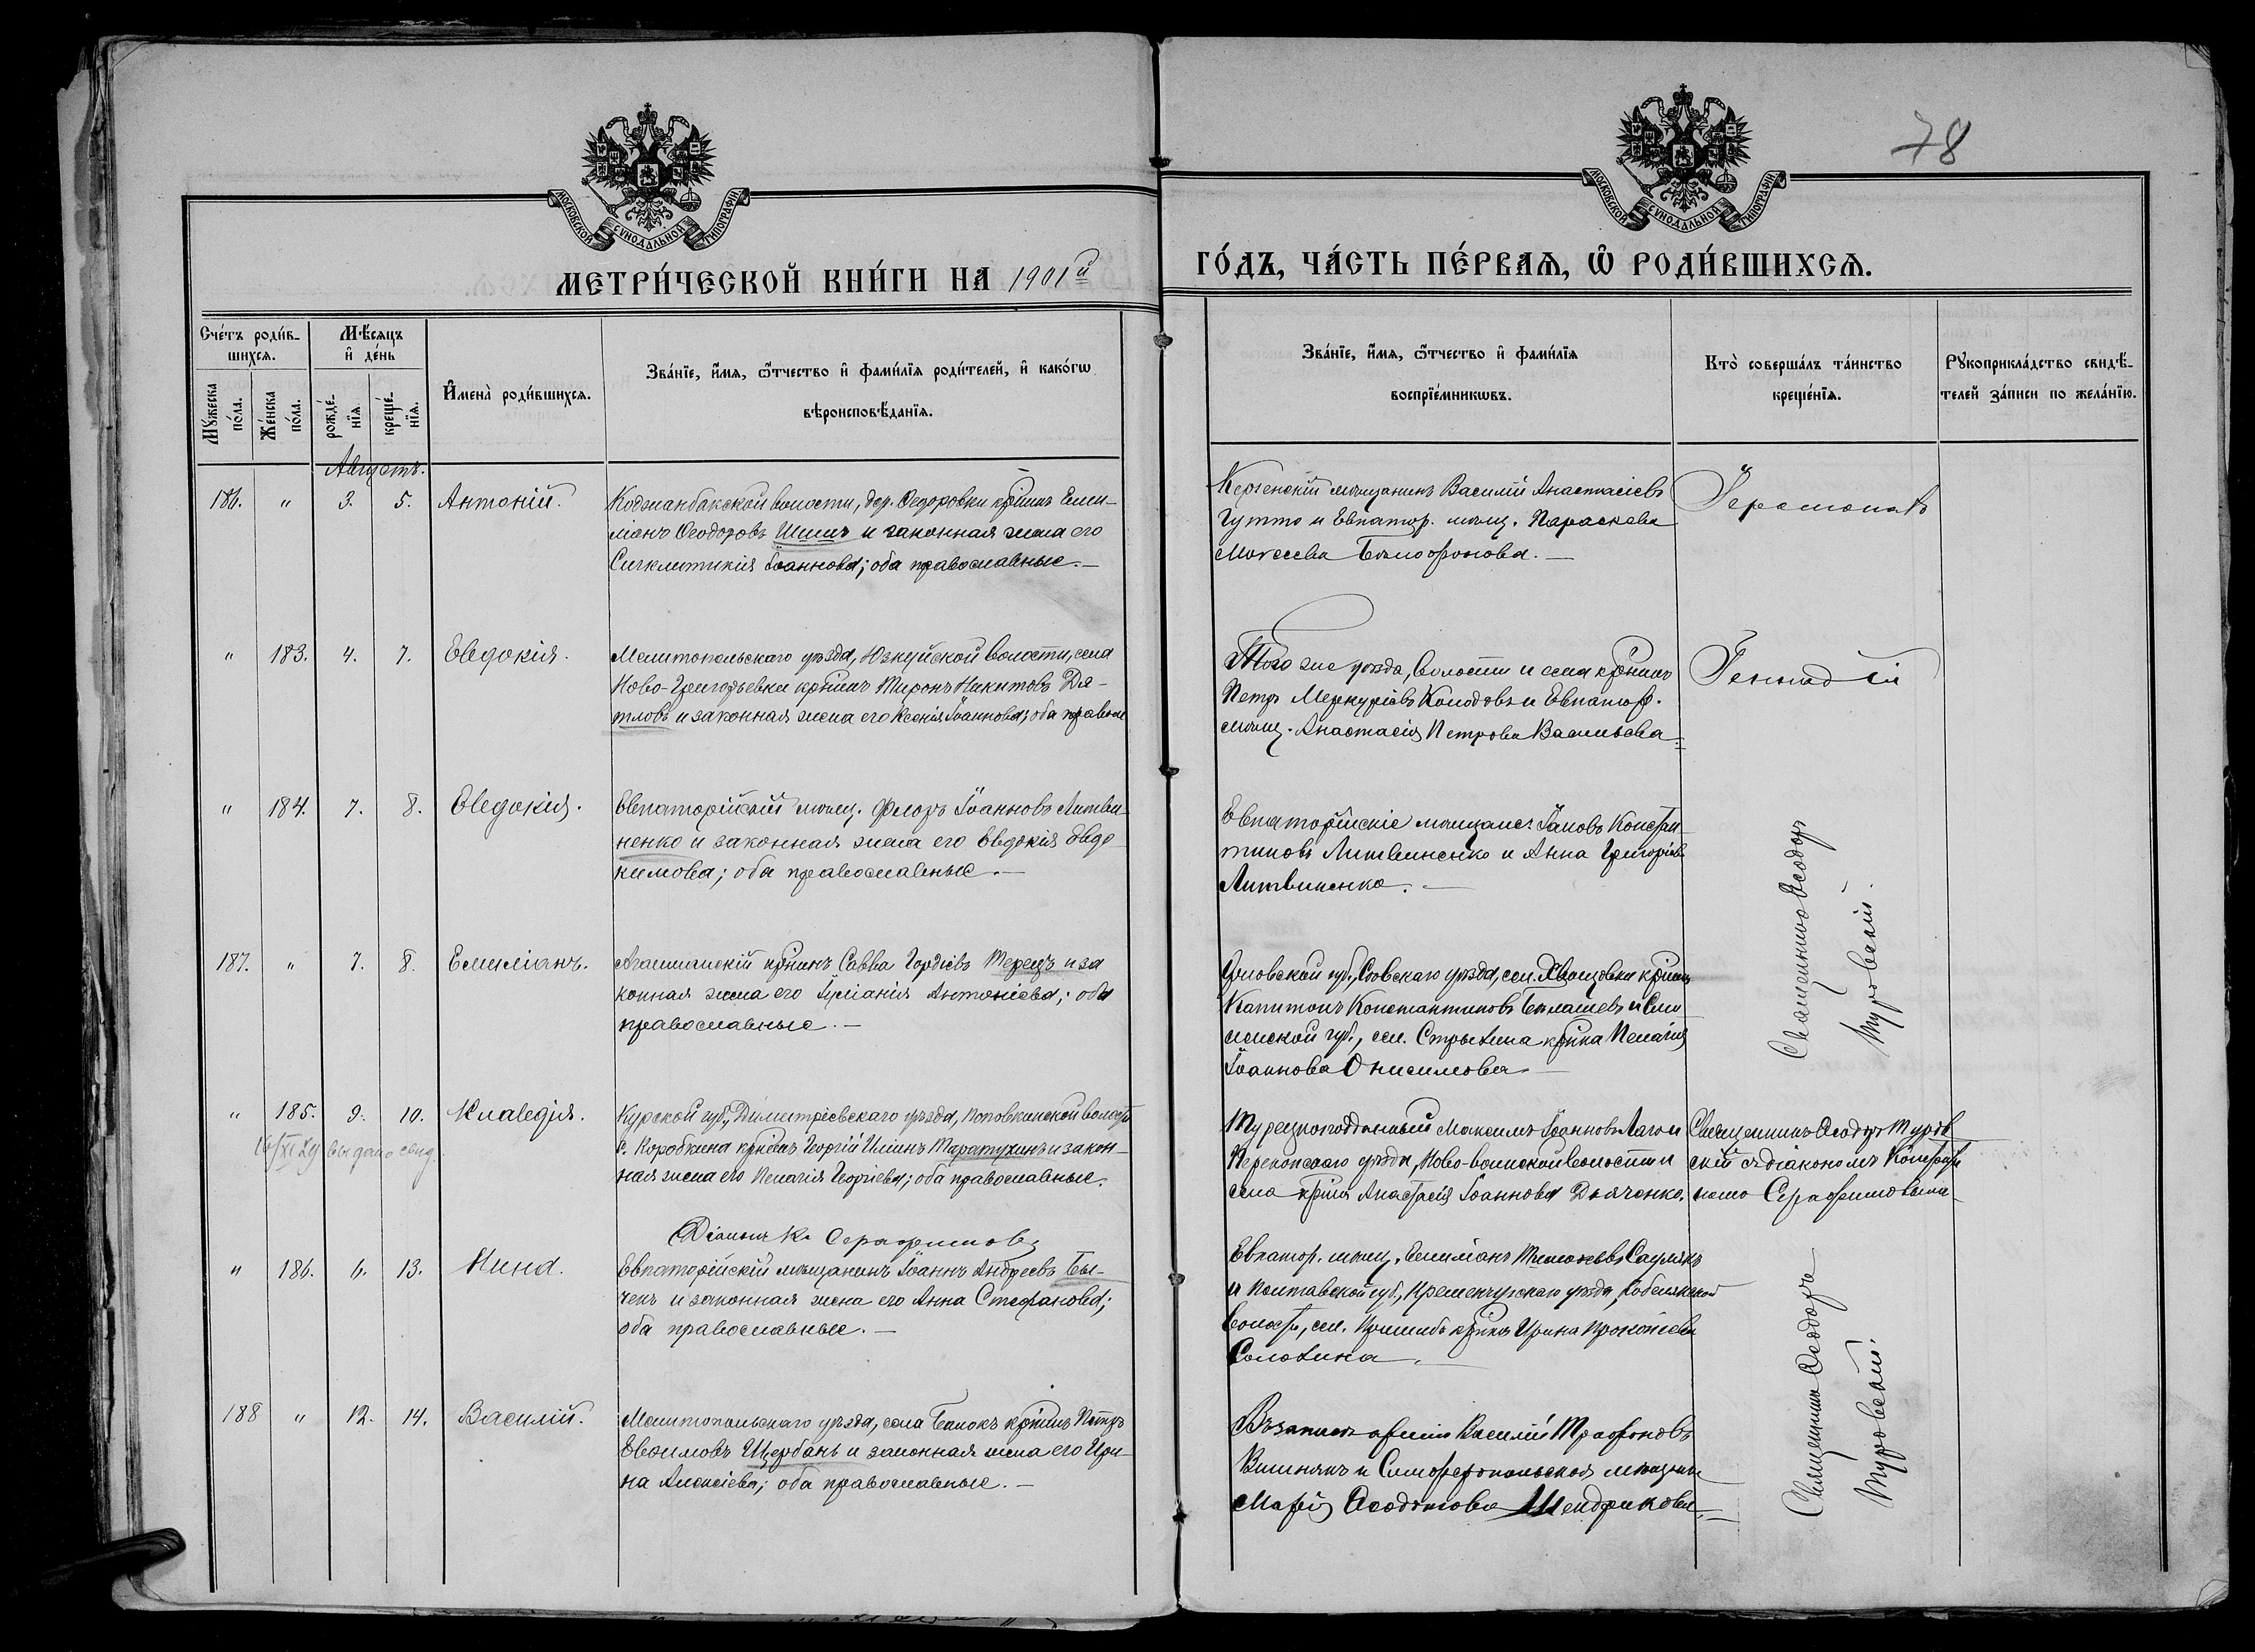 78
МОСКОВСКОЙ СѴНОДАЛЬНОЙ ТИПОГРАФІИ
МОСКОВСКОЙ СѴНОДАЛЬНОЙ ТИПОГРАФІИ
МЕТРИ́ЧЕСКОЙ КНИ́ГИ НА 1901й
ГО́ДЪ, ЧА́СТЬ ПЕ́РВАѦ, Ѡ҆ РОДИ́ВШИХСѦ.
Сче́тъ роди́в-
шихсѧ.
Мꙋ́жеска
по́ла.
Же́нска
по́ла.
Мѣ́сѧцъ
и҆ де́нь
рожде́-
нїѧ.
креще́-
нїѧ.
И҆мена̀ роди́вшихсѧ.
Зва́нїе, и҆́мѧ, ѻ҆́тчество и҆ фами́лїѧ роди́телей, и҆ како́гѡ
вѣроисповѣ́данїѧ.
Зва́нїе, и҆́мѧ, ѻ҆́тчество и҆ фами́лїѧ
воспрїе́мникѡвъ.
Кто̀ соверша́лъ та́инство
креще́нїѧ.
Рꙋкоприкла́дство свидѣ́-
телей за́писи по жела́нїю.
Августъ.
186. " 3. 5. Антоній.
Коджанбакской волости, дер. Ѳедоровки кр-нинъ Еми-
ліанъ Ѳеодоровъ Шишъ и законная жена его
Сигклитикія Іоаннова; оба православные.—
Керченскій мѣщанинъ Василій Анастасіевъ
Гутто и Евпатор. мѣщ. Параскева
Моисеева
Іеромонахъ
" 183. 4. 7. Евдокія.
Мелитопольскаго уѣзда, Юзкуйской волости, села
Ново-Григорьевки кр-нинъ Миронъ Никитовъ Дя-
тловъ и законная жена его Ксенія Іоаннова; оба правосл
Того же уѣзда, волости и села кр-нинъ
Петръ Меркуріевъ Колодовъ и Евпатор.
мѣщ. Анастасія Петрова Васильева.
Геннадій
" 184. 7. 8. Евдокія.
Евпаторійскій мѣщ. Флоръ Іоанновъ Литви-
ненко и законная жена его Евдокія Евдо-
кимова; оба православные.—
Евпаторійскіе мѣщане: Іаковъ Констан-
тиновъ Литвиненко и Анна Григоріева
Литвиненко.—
Священникъ Ѳеодоръ
Туровскій.
187. " 7. 8. Емиліанъ.
кр-нинъ Савва Гордіевъ Терецъ и за
конная жена его Іуліанія Антоніева; оба
православные.—
Орловской губ., Сѣвскаго уѣзда, сел. кр-нинъ
Капитонъ Константиновъ и Смо
ленской губ., сел. кр-нка Пелагія
Іоаннова Онисимова—
" 185. 9. 10. Клавдія.
16/XI 29 выдано свид.
Курской губ., Димитріевскаго уѣзда, Поповкинской волости
с. Коробкина кр-нинъ Георгій Ильинъ Таратухинъ и закон-
ная жена его Пелагія Георгіева; оба православные.
Турецкоподданный Максимъ Іоанновъ и
Перекопскаго уѣзда, Ново-воинской волости и
села кр-нка Анастасія Іоаннова Дьяченко.
Священникъ Ѳеодоръ Туров
скій съ діакономъ Констан
номъ Серафимовымъ
Діаконъ К. Серафимовъ
" 186. 6. 13. Нина.
Евпаторійскій мѣщанинъ Іоаннъ Андреевъ Бы-
чекъ и законная жена его Анна Стефанова;
оба православные.—
Евпатор. мѣщ. Емиліанъ Тимоѳеевъ
и Полтавской губ., Кременчугскаго уѣзда,
волости, сел. кр-нка Ирина Прокопіева
188 " 12. 14. Василій.
Мелитопольскаго уѣзда, села Балокъ кр-нинъ Петръ
Евѳимовъ Щербань и законная жена его Ири-
на Алексіева; оба православные.—
Въ запасѣ арміи Василій Трофимовъ
Вишнякъ и Симферопольская мѣщанка
Марія Ѳеодотова Шендрикова.
Священникъ Ѳеодоръ
Туровскій.